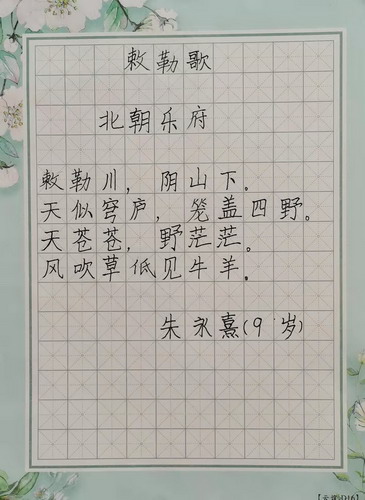 敕勒歌
北朝乐府
敕勒川，阴山下。
天似穹庐，笼盖四野。
天苍苍，野茫茫。
风吹草低见牛羊。
朱永熹(9岁)